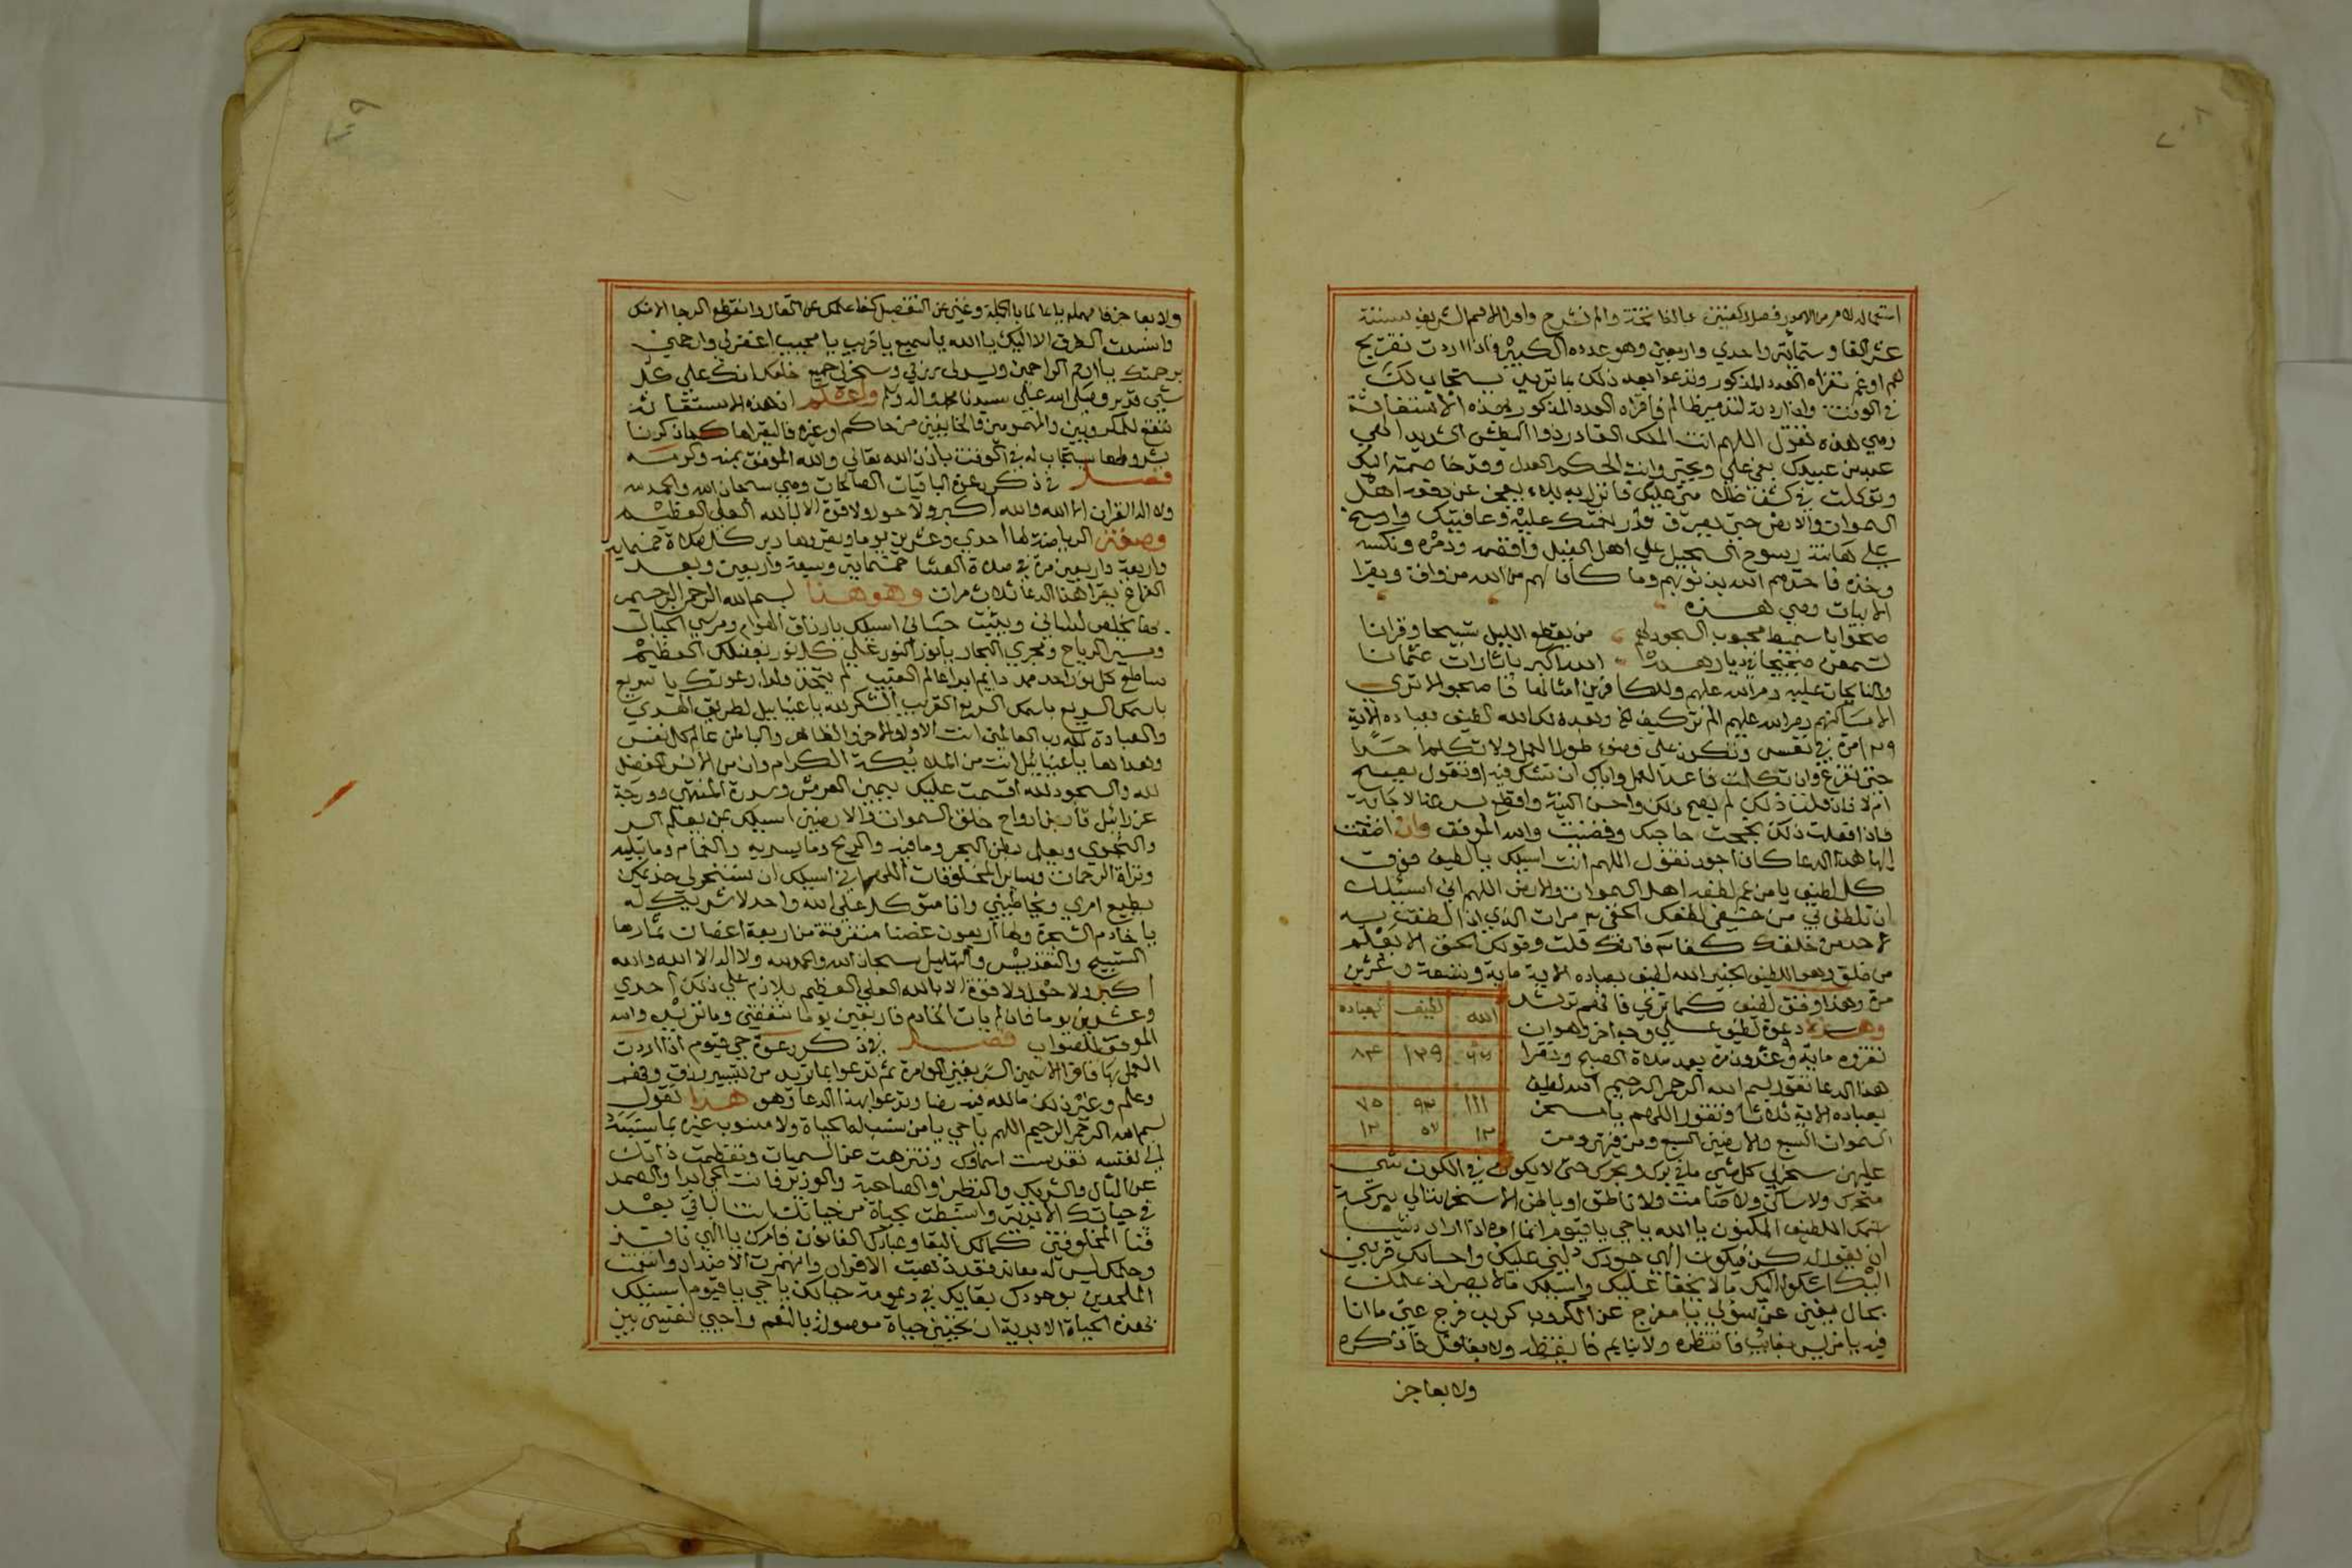 ٢٠٨
استعماله لامر من الامور فصل ركعتين بالفاتحة والم نشرح واقرا الاسم الشريف ستة
عشر الفا وستماية واحدي واربعين وهو عدده الكبير واذا اردت تفريج
هم او غم تقراه العدد المذكور وتدعوا بعد ذلك بما تريد يستجاب لك
في الوقت وان اردته لتدمير ظالم فاقراه العدد المذكور بهذه الاستغاثة
وهي هذه تقول اللهم انت الملك القادر ذوا البطش الشديد الهي
عبد من عبيدك بغي علي وانت الحكم العدل وقد خاصمته اليك
وتوكلت في كشف عليك فانزل به بلاء يعجز عن دفعه اهل
السموات والارض حتي يعرف قدر نعمتك عليه وعافيتك وارسخ
علي هامته رسوخ السجيل علي اهل الفيل ودمره ونكسه
وخذه فاخذهم الله بذنوبهم وما كان لهم من الله من واق ويقرا
الابيات وهي هذه
ضحوا باشمط السجود له من يقطع الليل تسبيحا وقرانا
لتسمعن في ديارهم الله اكبر يا ثارات عثمانا
دمر الله عليهم وللكافرين امثالها فاصبحوا لا تري
الا مساكنهم دمر الله عليهم الم تر كيف الخ وبعده لك الله لطيف بعباده الاية
مرة في نفس وتكون علي وضوء طول العمل ولا تكلم احدا
حتي تفرغ وان تكلمت فاعد العمل واياك ان تشك فيه او تقول يصح
ام لا فان قلت ذلك لم يصح ذلك واحسن النية واقطع بالاجابة
فاذا فعلت ذلك نجحت حاجتك وقضيت والله الموفق وان اضفت
اليها هذا الدعا كان اجود تقول اللهم اني اسيلك يا لطيف فوق
كل لطيف يا من عم لطفه اهل السموات والارض اللهم اني اسيلك
ان تلطف بي من خفي لطفك الخفي الذي اذا لطفت به
لاحد من خلقك كفا فانك قلت وقولك الحق الا يعلم
من خلق وهو اللطيف الخبير الله لطيف بعباده الاية ماية وتسعة وعشرين
مرة وهذا وفق لطيف كما تري فافهم ترشد
وهذه دعوة لطيف علي وجه اخر وهو ان
تقروه ماية وعشرون مرة بعد صلاة الصبح وتقرا
هذا الدعا تقول بسم الله الرحمن الرحيم الله لطيف
بعباده الاية ثلاثا وتقول اللهم يا مسخر
السموات السبع والارضين السبع ومن فيهن ومن
الله لطيف بعباده
٦٦ ١٣٩ ٨٤
١١١ ٩٣ ٧٥
١٢ ٥٧ ١٢
عليهن سخر لي كل شي مافي برك وبحرك حتي لا يكون في الكون شي
متحرك ولا ساكن ولا صامت ولا ناطق او باطن الا سخرته لي ببركة
اسمك اللطيف المكنون يا الله يا حي يا قيوم انما امره اذا اراد شيئا
ان يقول له كن فيكون الهي جودك دلني عليك واحسانك قربني
اليك اشكوا اليك ما لا يخفا عليك واسيلك مالا يعسر اذ علمك
بحالي يغني عن سؤلي يا مفرج عن المكروب كربه فرج عني ما انا
فيه يا من ليس بغايب فانتظره ولا بنايم فايقظه ولا بغافل فاذكره
ولا بعاجز
٢٠٩
ولا بعاجز فامهله يا عالما بالجملة وغني عن التفصيل كفا علمك عن المقال وانقطع الرجا الا منك
وانسدت الطرق الا اليك يا الله يا سميع يا قريب يا مجيب اغفر لي وارحمني
برحمتك يا ارحم الراحمين ويسر لي رزقي وسخر لي جميع خلقك انك علي كل
شي قدير وصلي الله علي سيدنا محمد واله وسلم واعلم ان هذه الاستغاثة
تنفع للمكروبين والمهمومين والخايفين من حاكم او غيره فاليقراها كما ذكرنا
بشروطها يستجاب له في الوقت باذن الله تعالي والله الموفق بمنه وكرمه
فصل في ذكر دعوة الباقيات الصالحات وهي سبحان الله والحمد لله
ولا اله الا الله والله اكبر ولا حول ولا قوة الا بالله العلي العظيم
وصفة الرياضة لها احدي وعشرين يوما ويقروها دبر كل صلاة خمسماية
واربعة واربعين مرة في صلاة العشا خمسماية وسبعة واربعين وبعد
الفراغ يقرا هذا الدعا ثلاث مرات وهو هذا بسم الله الرحمن الرحيم
لساني ويثبت جناني اسيلك يا رزاق الهوام ومرسي الجبال
ومسير الرياح ومجري البحار يا نور النور علي كل نور بفضلك العظيم
ساطع كل نور احد صمد دايم ابدا عالم الغيب لم يتخذ ولدا دعوتك يا سريع
باسمك السريع باسمك السريع القريب الشكر لله يا عنيابيل لطريق الهدي
والعبادة لله رب العالمين انت الاول والاخر والظاهر والباطن عالم كل نفس
وهداها يا عنيابيل انت من الملايكة الكرام وان من الانس الفضل
لله والسجود لله اقسمت عليك بيمين العرش وسدرة المنتهي ودرجة
عزرائيل قابض ارواح خلق السموات والارضين اسيلك بمن يعلم السر
والنجوي ويعلم بطن البحر ومافيه والريح وما يسر به والغمام وما يليه
ونزلة الرحمات وساير المخلوقات اللهم اني اسيلك ان تسخر لي خديمك
يطيع امري ويخاطبني وانا متوكل علي الله واحد لا شريك له
يا خادم الشجرة ولها اربعون غصنا متفرقة من اربعة اغصان ثمارها
التسبيح والتقديس والتهليل سبحان الله والحمد لله ولا اله الا الله والله
اكبر ولا حول ولا قوة الا بالله العلي العظيم يلازم علي ذلك احدي
وعشرين يوما فان لم يات الخادم فاربعين يوما تنقضي وما تريد والله
الموفق للصواب فصل في ذكر دعوة حي قيوم اذا اردت
العمل بها فاقرا الاسمين الشريفين الف مرة ثم تدعوا بما تريد من تيسير رزق وفهم
وعلم وغير ذلك مالله فيه رضا وتدعوا بهذا الدعا وهو هذا تقول
بسم الله الرحمن الرحيم اللهم يا حي يا من تنسب له الحياة ولا منسوب غيره بما نسبته
الي نفسه تقدست اسماؤك وتنزهت عن السميات وتعظمت ذاتك
عن المثال والشريك والنظير والصاحبة والوزير فانت الحي ابدا والصمد
في حياتك الابدية وانبسطت بحياة من حياتك انت الباقي بعد
فنا المخلوقين كما لك البقا وعبادك الفانون فامرك يا الهي نافذ
وحكمك ليس له معاند فقد ذهبت الاقران وانهزمت الاضداد وانتفت
الملحدين بوجودك بقايك في ديمومة حياتك يا حي يا قيوم اسيلك
بهذه الحياة الابدية ان تحييني حياة موصولة بالنعم واحيي نفسي بين